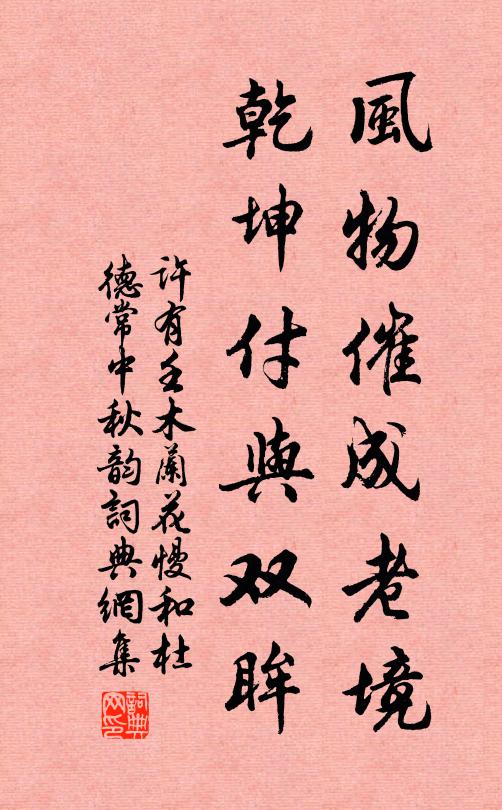 風物催成老境
乾坤付與双眸
許有壬木蘭花慢和杜
德常中秋韵詞典網集
詞典网印